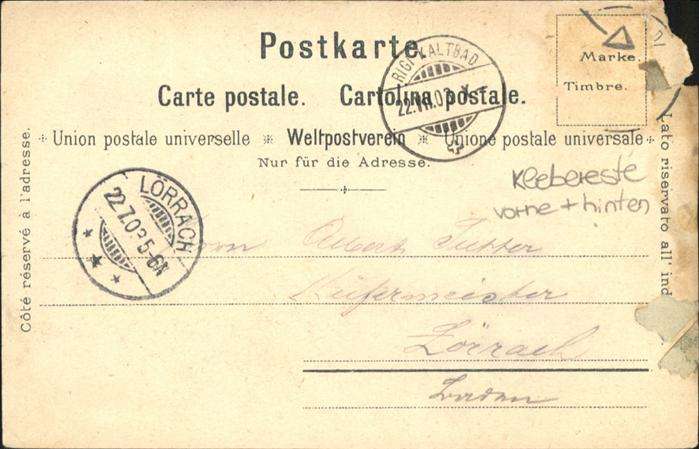 Postkarte.
Marke.
Timbre.
RIGI KALTBAD
22.VII.03.X
Carte postale. Cartolina postale.
Union postale universelle ※ Weltpostverein ※ Unione postale universale
Nur für die Adresse.
Côté réservé à l'adresse.
Lato riservato all' ind
Klebereste
vorne + hinten
LÖRRACH
22.7.03 5-6N
Albert
Küfermeister
Lörrach
Baden